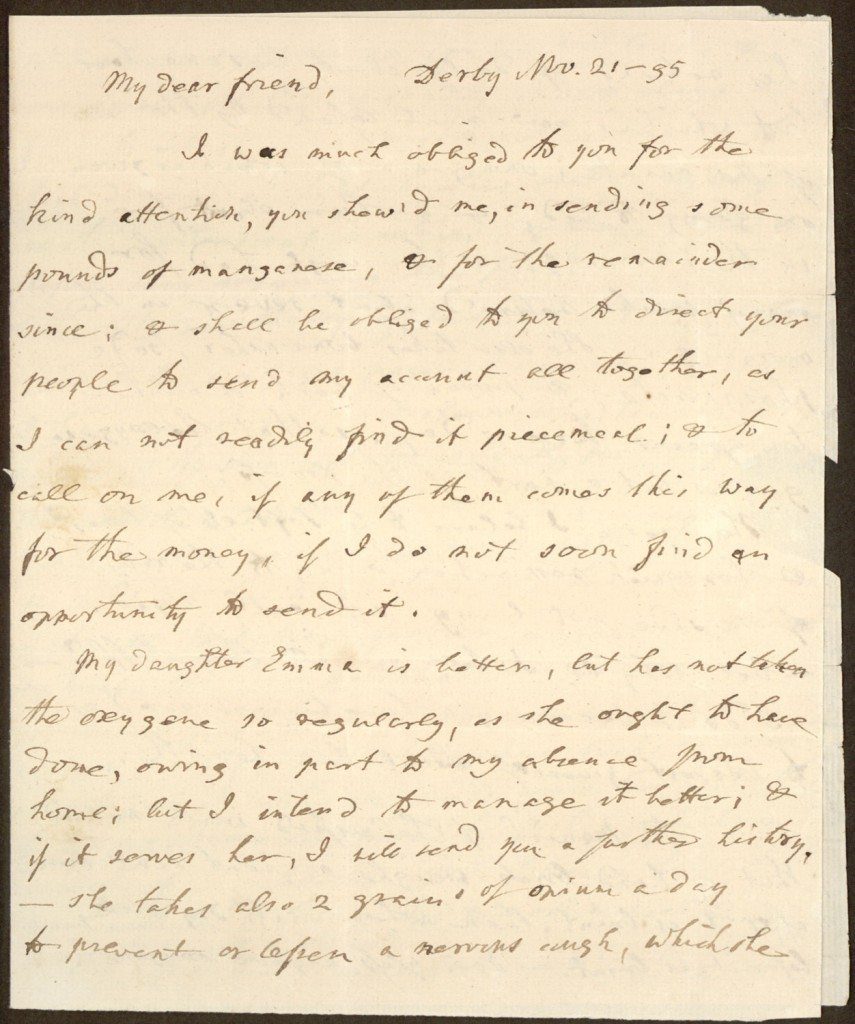 My dear friend, Derby Nov. 21-95
I was much obliged to you for the
kind attention, you shew'd me, in sending some
pounds of manganese, & for the remainder
since; & shall be obliged to you to direct your
people to send my account all together, as
I can not readily find it piecemeal; & to
call on me, if any of them comes this way
for the money, if I do not soon find an
opportunity to send it.
My daughter Emma is better, but has not taken
the oxygene so regularly, as she ought to have
done, owing in part to my absence from
home; but I intend to manage it better; &
if it serves her, I will send you a further history.
— she takes also 2 grains of opium a day
to prevent or lessen a nervous cough, which she